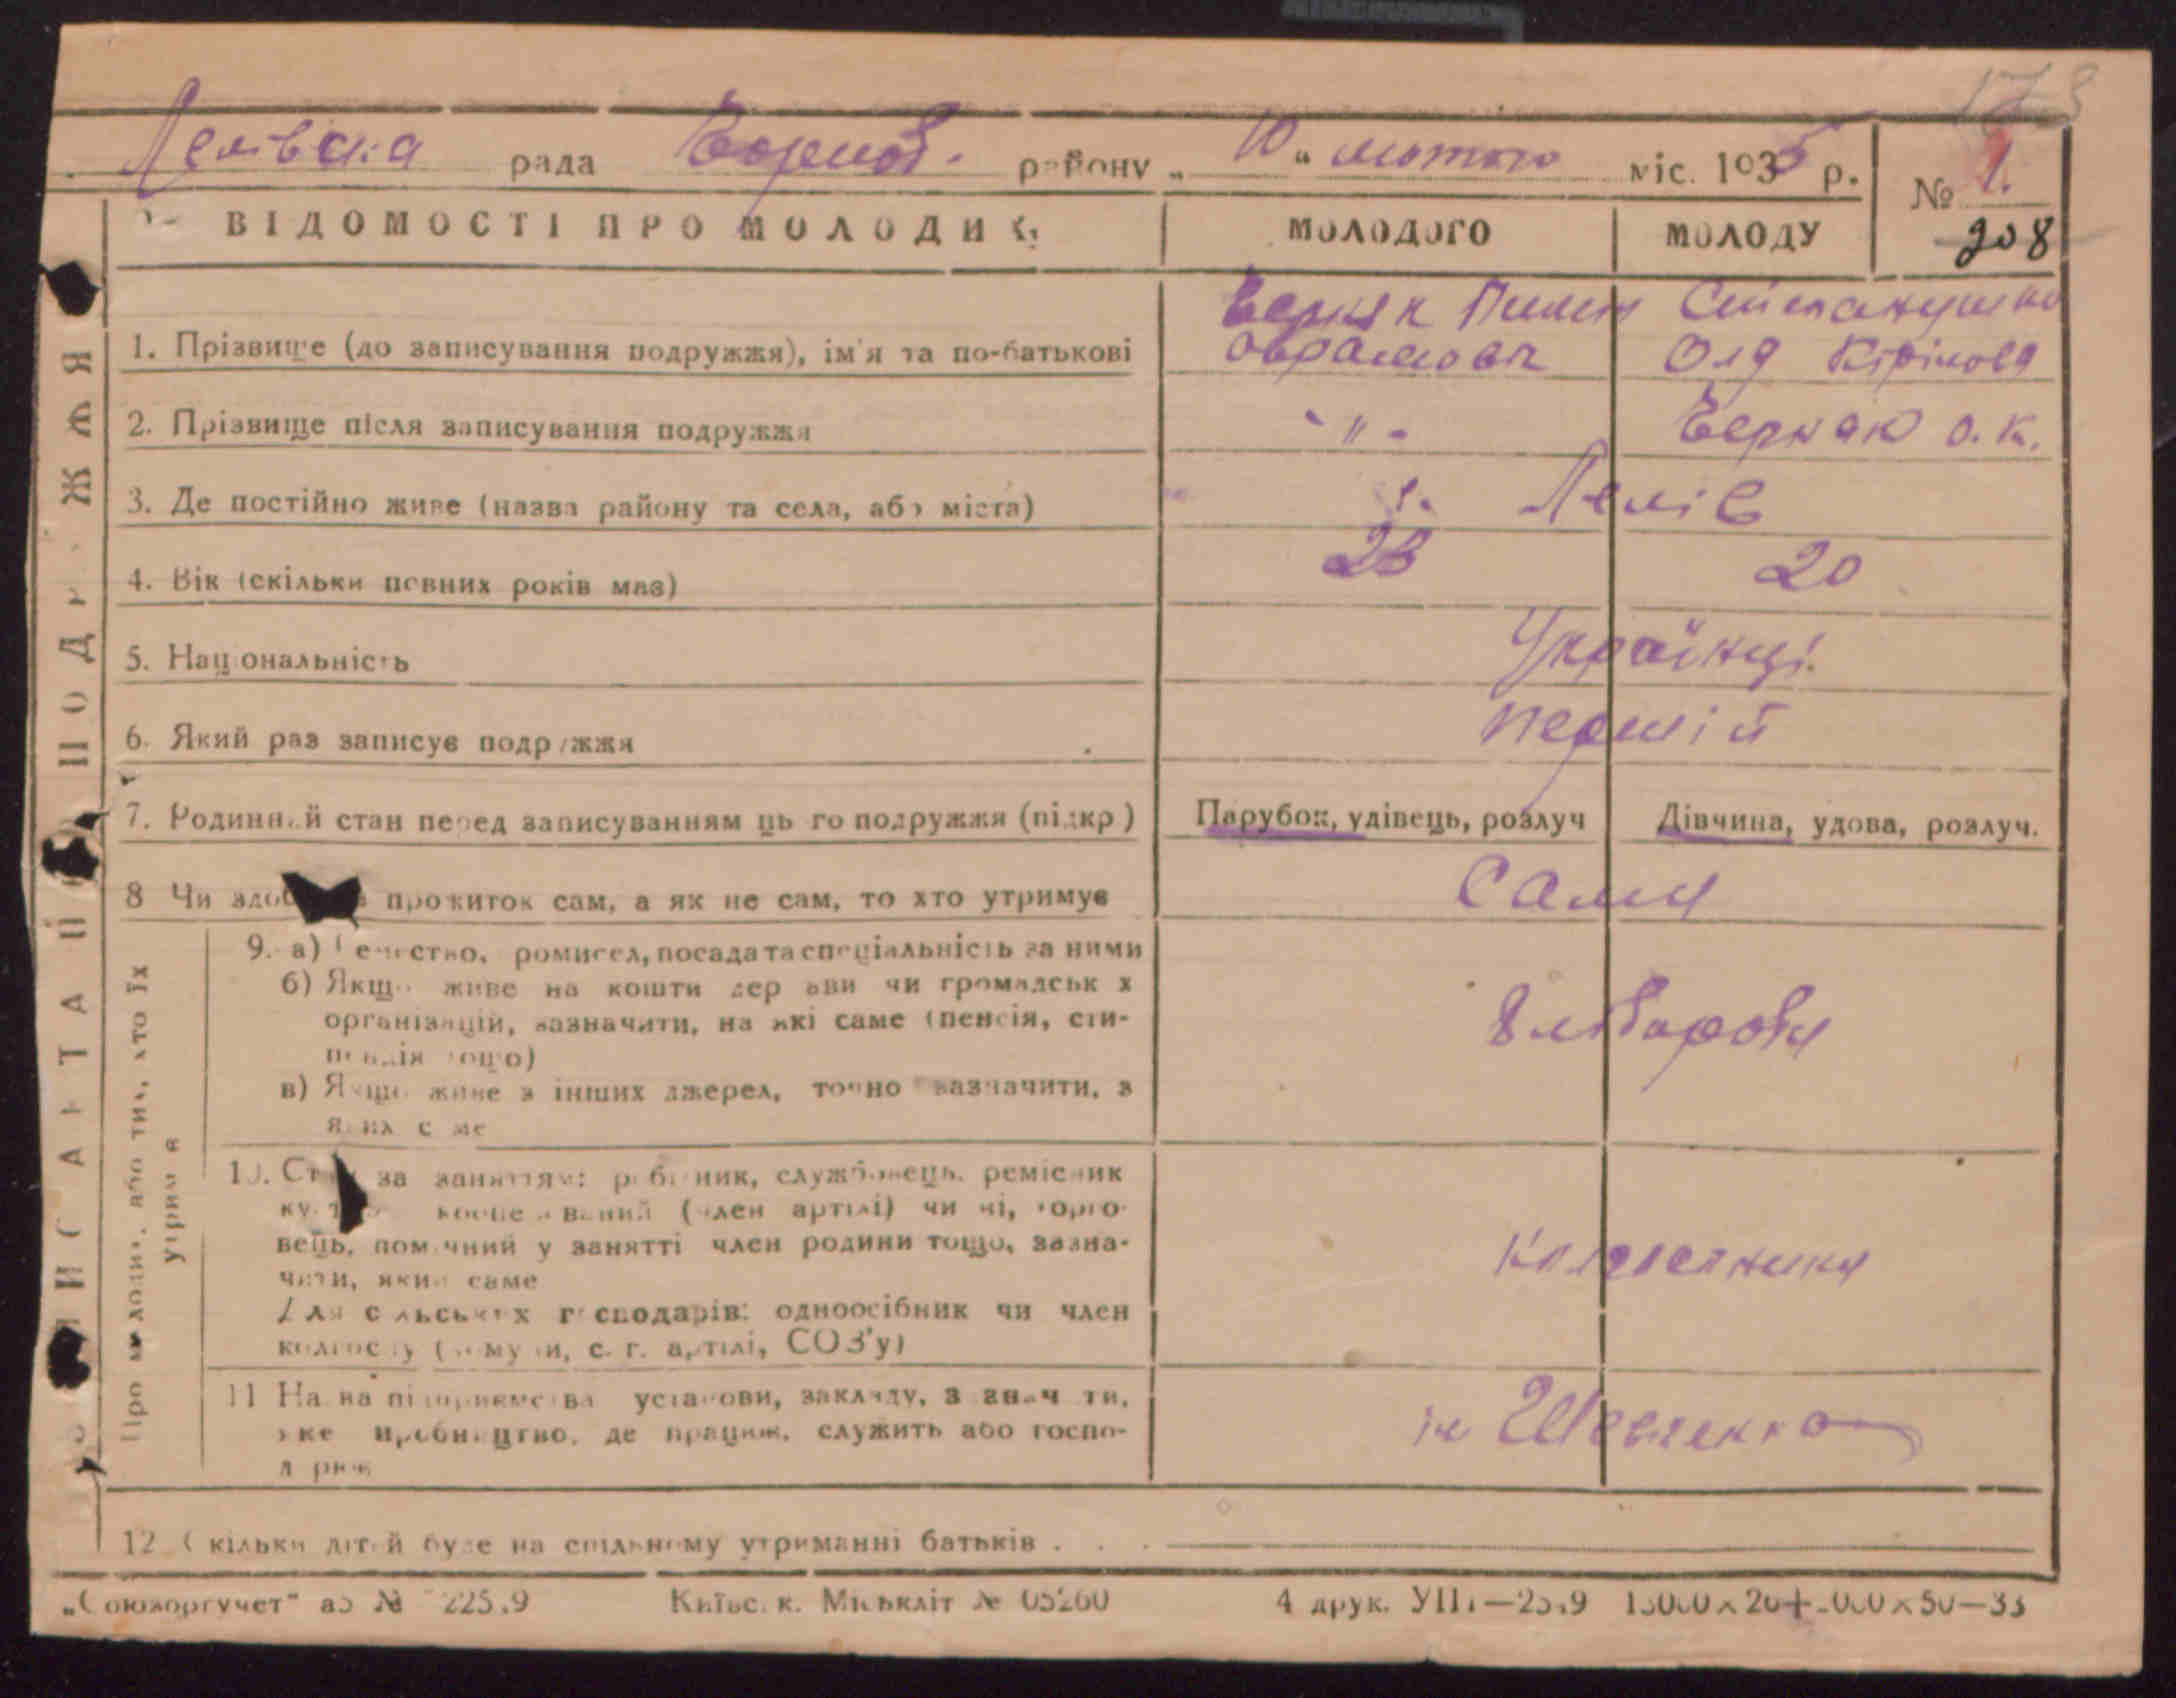 178
Лелівска рада Чорноб. району „ 10 " лютого міс. 1935 р.
№ 1.
ВІДОМОСТІ ПРО МОЛОДИХ МОЛОДОГО МОЛОДУ
208
ЗАПИС АКТА ПОДРУЖЖЯ
1. Прізвище (до записування подружжя), ім'я та по-батькові
Пилип
Оврамович
2. Прізвище після записування подружжя - " - о. к.
3. Де постійно живе (назва району та села, або міста) с. Лелів
4. Вік (скільки повних років має) 23 20
5. Національність Українці.
6. Який раз записує подружжя першій
7. Родинний стан перед записуванням цього подружжя (підкр) Парубок, удівець, розлуч Дівчина, удова, розлуч.
8 Чи здобував прожиток сам, а як не сам, то хто утримує Сами
Про молодих, або тих, хто їх
утримує
9. а) ремисел, посада та спеціальність за ними
б) Якщо живе на кошти держави чи громадських
організацій, зазначити, на які саме (пенсія, сти-
пендія тощо)
в) Якщо живе з інших джерел, точно зазначити, з
яких саме
Хлібороби
10. Стан за заняттям: робітник, службовець, ремісник
(член артілі) чи ні, торго-
вець, помічний у занятті член родини тощо, зазна-
чити, який саме
Для сільських господарів: одноосібник чи член
колгоспу (комуни, с. г. артілі, СОЗ'у)
Колгоспники
11 Назва підприємства установи, закладу, зазначити,
яке виробництво, де працює, служить або госпо-
дарює
ім Шевченка
12 Скільки дітей буде на спільному утриманні батьків . . .
„Союзоргучет" № Київськ. Міськліт № 05260 4 друк.